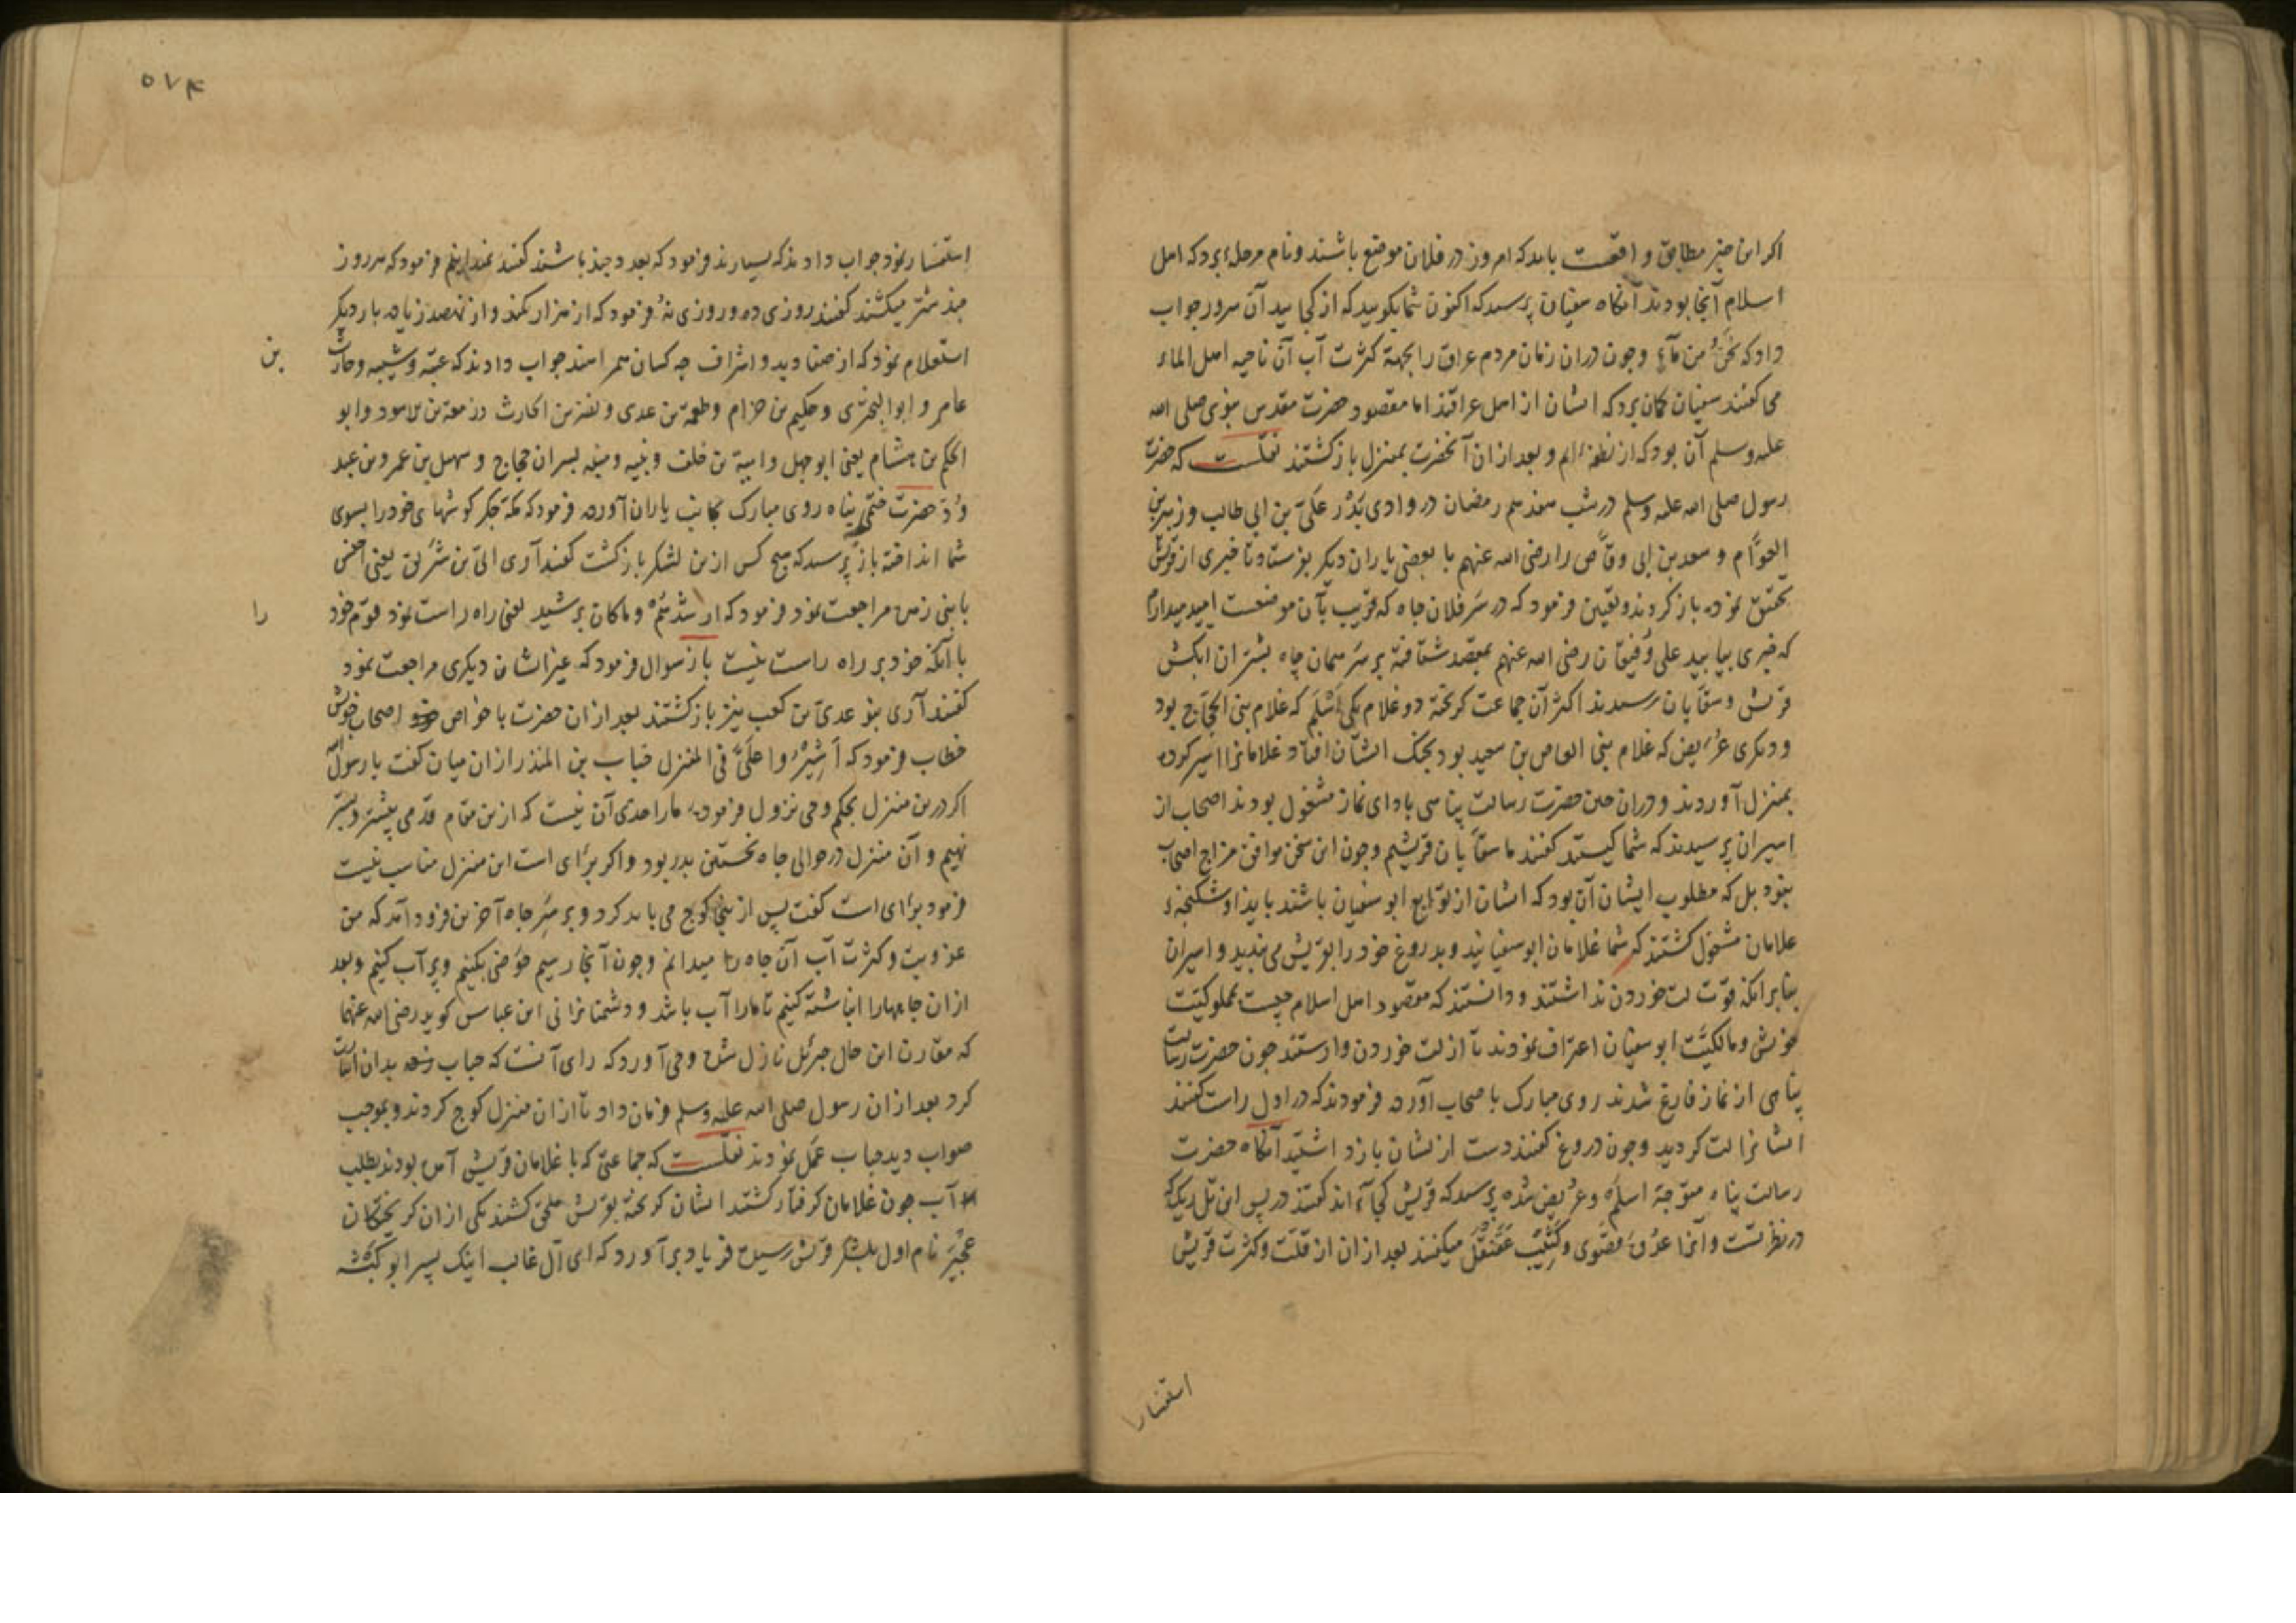 اکر این خبر مطابق واقعست باید که امروز در فلان موضع باشند و نام مرحلهٔ برد که اهل
اسلام آنجا بودند آنکاه سفیان پرسید که اکنون شما بکویید که از کجایید آن سرور جواب
داد که نحنُ من ماءٍ و چون دران زمان مردم عراق را بجهة کثرت آب آن ناحیه اهل الماء
می کفتند سفیان کمان برد که ایشان از اهل عراقند اما مقصود حضرت مقدس نبوی صلی الله
علیه وسلم آن بود که از نطفهٔ ایم و بعد ازان آنحضرت بمنزل باز کشتند نقلست که حضرت
رسول صلی الله علیه وسلم در شب هفدهم رمضان در وادی بَدْر علیّ بن ابی طالب و زبیر بن
العوّام و سعد بن ابی وقّاص را رضی الله عنهم با بعضی یاران دیکر بفرستاد تا خبری از قریش
تحقیق نموده باز کردند و تعیین فرمود که در سر فلان چاه که قریب بآن موضعست امید میدارم
که خبری بیابید علی و رفیقان رضی الله عنهم بمقصد شتافته بر سر همان چاه بشتران آبکش
قریش و سقّایان رسیدند اکثر آن جماعت کریخته دو غلام یکی اَسْلَم که غلام بنی الحجّاج بود
و دیکری عُریض که غلام بنی العاص بن سعید بود بجنک ایشان افتاد و غلامانرا اسیر کرده
بمنزل آوردند و دران حین حضرت رسالت پناهی بادای نماز مشغول بودند اصحاب از
اسیران پرسیدند که شما کیستید کفتند ما سقّایان قریشیم و چون این سخن موافق مزاج اصحاب
نبود بل که مطلوب ایشان آن بود که ایشان از توابع ابو سفیان باشند بایذا و شکنجهٔ
غلامان مشغول کشتند که شما غلامان ابو سفیانید و بدروغ خود را بقریش می بندید و اسیران
بنابر آنکه قوّت لت خوردن نداشتند و دانستند که مقصود اهل اسلام چیست بمملوکیّت
خویش و مالکیّت ابو سفیان اعتراف نمودند تا از لت خوردن وارستند چون حضرت رسالت
پناهی از نماز فارغ شدند روی مبارک باصحاب آورده فرمودند که در اول راست کفتند
ایشانرا لت کردید و چون دروغ کفتند دست ازیشان باز داشتید آنکاه حضرت
رسالت پناه متوجهٔ اسلم و عریض شده پرسید که قریش کجااند کفتند در پس این تل ریک که
در نظرتست و آنرا عدوهٔ قصوی و کثیب عقنقل میکفتند بعد ازان از قلّت و کثرت قریش
استفسارا
۵۷۴
استفسار نمود جواب دادند که بسیارند فرمود که بعدد چند باشند کفتند نمیدانیم فرمود که هر روز
چند شتر میکشند کفتند روزی ده و روزی نه فرمود که از هزار کمند و از نهصد زیاده بار دیکر
استعلام نمود که از صنادید و اشراف چه کسان همراهند جواب دادند که عتبه و شیبه و حارث
بن
عامر و ابو البختری و حکیم بن حزام و طعمة بن عدی و نضر بن الحارث و زمعة بن الاسود و ابو
الحکم بن هشام یعنی ابو جهل و امیة بن خلف و نبیه و منبه پسران حجاج و سهیل بن عمرو بن عبد
وُدّ حضرت ختمی پناه روی مبارک بجانب یاران آورده فرمود که مکّه جکر کوشهای خود را بسوی
شما انداخته باز پرسید که هیچ کس ازین لشکر باز کشت کفتند آری ابیّ بن شریق یعنی اخنس
با بنی زهره مراجعت نمود فرمود که ارشدهُمْ و ما کان برشید یعنی راه راست نمود قوم خود
را
با آنکه خود بر راه راست نیست باز سوال فرمود که غیر ایشان دیکری مراجعت نمود
کفتند آری بنو عدیّ بن کعب نیز باز کشتند بعد ازان حضرت با خواص اصحاب خویش
خطاب فرمود که اَشیرُوا علَیَّ فی المنزل حباب بن المنذر ازان میان کفت یا رسول الله
اکر درین منزل بحکم وحی نزول فرموده ما را حدّی آن نیست که ازین مقام قدمی پیشتر و پستر
نهیم و آن منزل در حوالی چاه نخستین بدر بود و اکر برای است این منزل مناسب نیست
فرمود برای است کفت پس از ینجا کوچ می باید کرد و بر سر چاه آخرین فرود آمد که من
عذوبت و کثرت آب آن چاه را میدانم و چون آنجا رسیم حوضی بکنیم و پر آب کنیم و بعد
ازان چاهها را انباشته کنیم تا ما را آب باشد و دشمنانرا نی ابن عباس کوید رضی الله عنهما
که مقارن این حال جبرئیل نازل شده وحی آورد که رای آنست که حباب بدان اشارت
کرد بعد ازان رسول صلی الله علیه وسلم فرمان داد تا ازان منزل کوچ کردند و بموجب
صواب دید حباب عمل نمودند نقلست که جماعتی که با غلامان قریش آمده بودند بطلب
آب چون غلامان کرفتار کشتند ایشان کریخته بقریش ملحق کشتند یکی ازان کریختکان
عُجَیْر نام اول بلشکر قریش رسیده فریاد بر آورد که ای آل غالب اینک پسر ابو کبشه